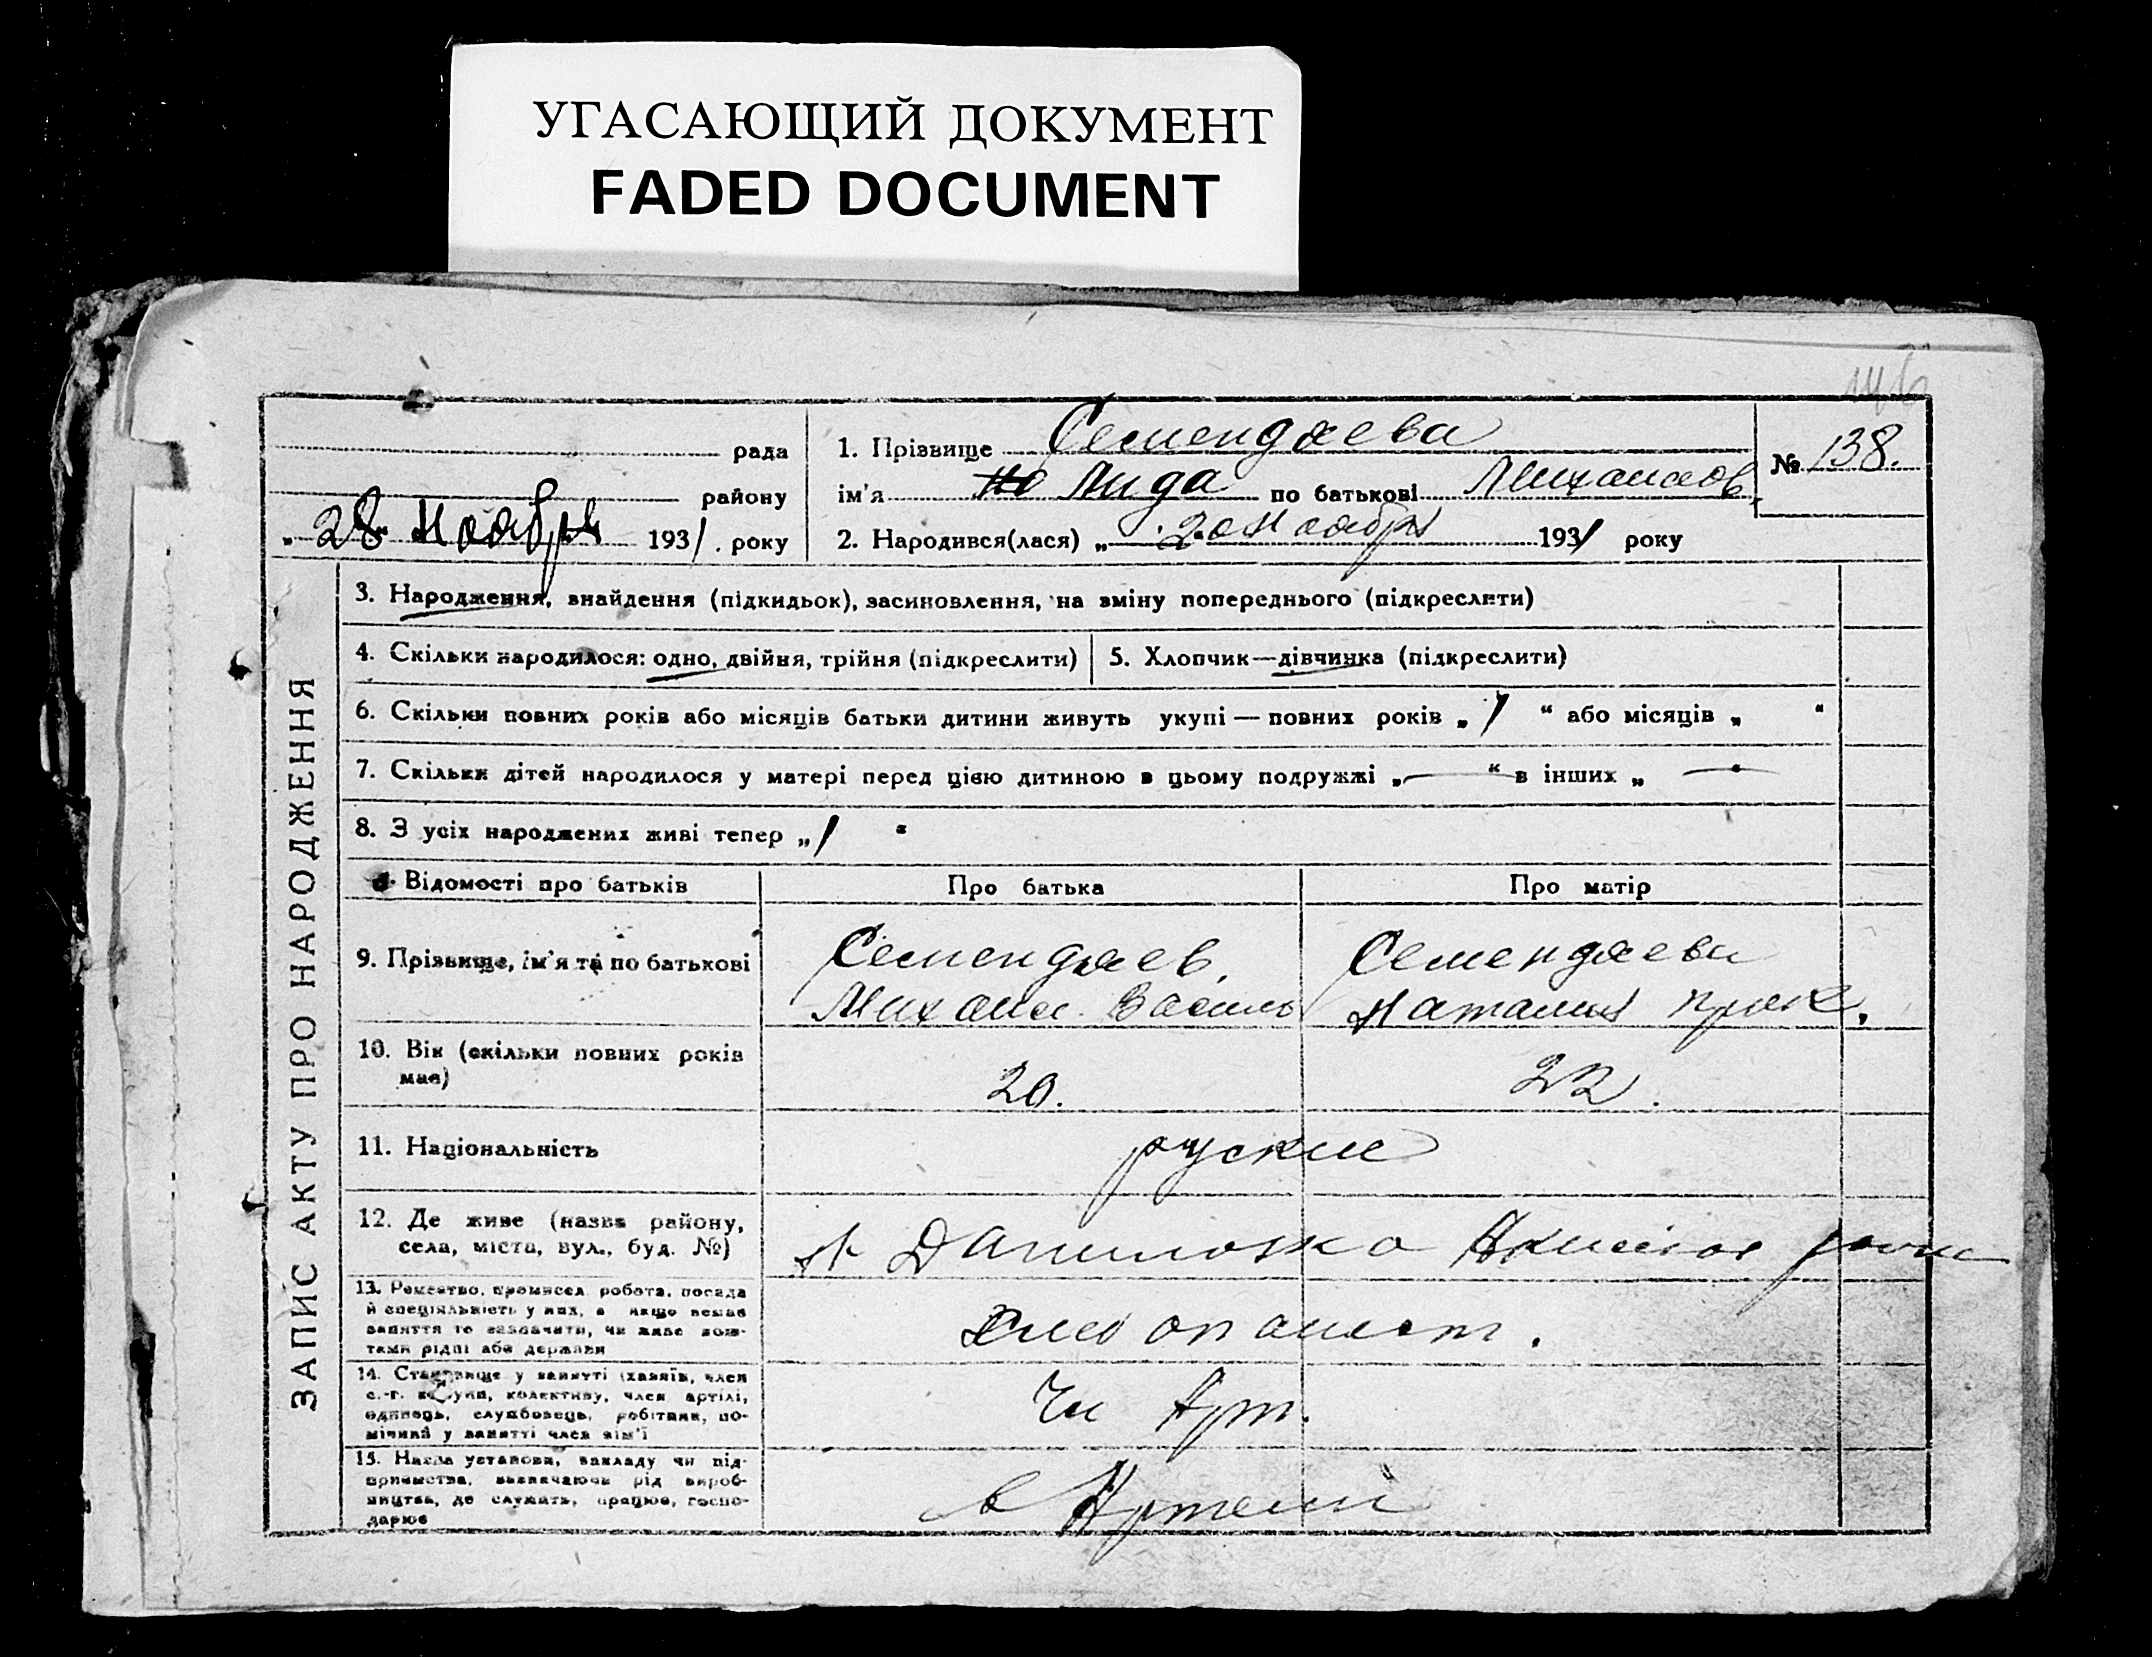 УГАСАЮЩИЙ ДОКУМЕНТ
FADED DOCUMENT
146
рада
району
„ 28 " Ноября 1931. року
1. Прізвище Семендяева
ім'я Лида по батькові Михаилов.
№ 138.
2. Народився(лася) „ 20 Ноября 1931 року
ЗАПИС АКТУ ПРО НАРОДЖЕННЯ
3. Народження, знайдення (підкидьок), засиновлення, на зміну попереднього (підкреслити)
4. Скільки народилося: одно, двійня, трійня (підкреслити)
5. Хлопчик—дівчинка (підкреслити)
6. Скільки повних років або місяців батьки дитини живуть укупі — повних років „ 1 “ або місяців „ “
7. Скільки дітей народилося у матері перед цією дитиною в цьому подружжі „ — “ в інших „ — “
8. З усіх народжених живі тепер „ 1 “
Відомості про батьків
Про батька
Про матір
9. Прізвище, ім'я та по батькові
Семендяев,
Михаил Василь
Семендяева
Наталия Прок.
10. Вік (скільки повних років
має)
20.
22.
11. Національність
руские
12. Де живе (назва району,
села, міста, вул., буд. №)
Даниловка
13. Ремество, промисел, робота, посада
й спеціяльність у них, а якщо немає
заняття то зазначити, чи живе кош-
тами рідні або держави
хлебопашест.
14. Становище у занятті (хазяїн, член
с.-г. комуни, колективу, член артілі,
одинець, службовець, робітник, по-
мічний у занятті член сім'ї
Чл Арт.
15. Назва установи, закладу чи під-
приємства, визначаючи рід вироб-
ництва, де служить, працює, госпо-
дарює
в Артели